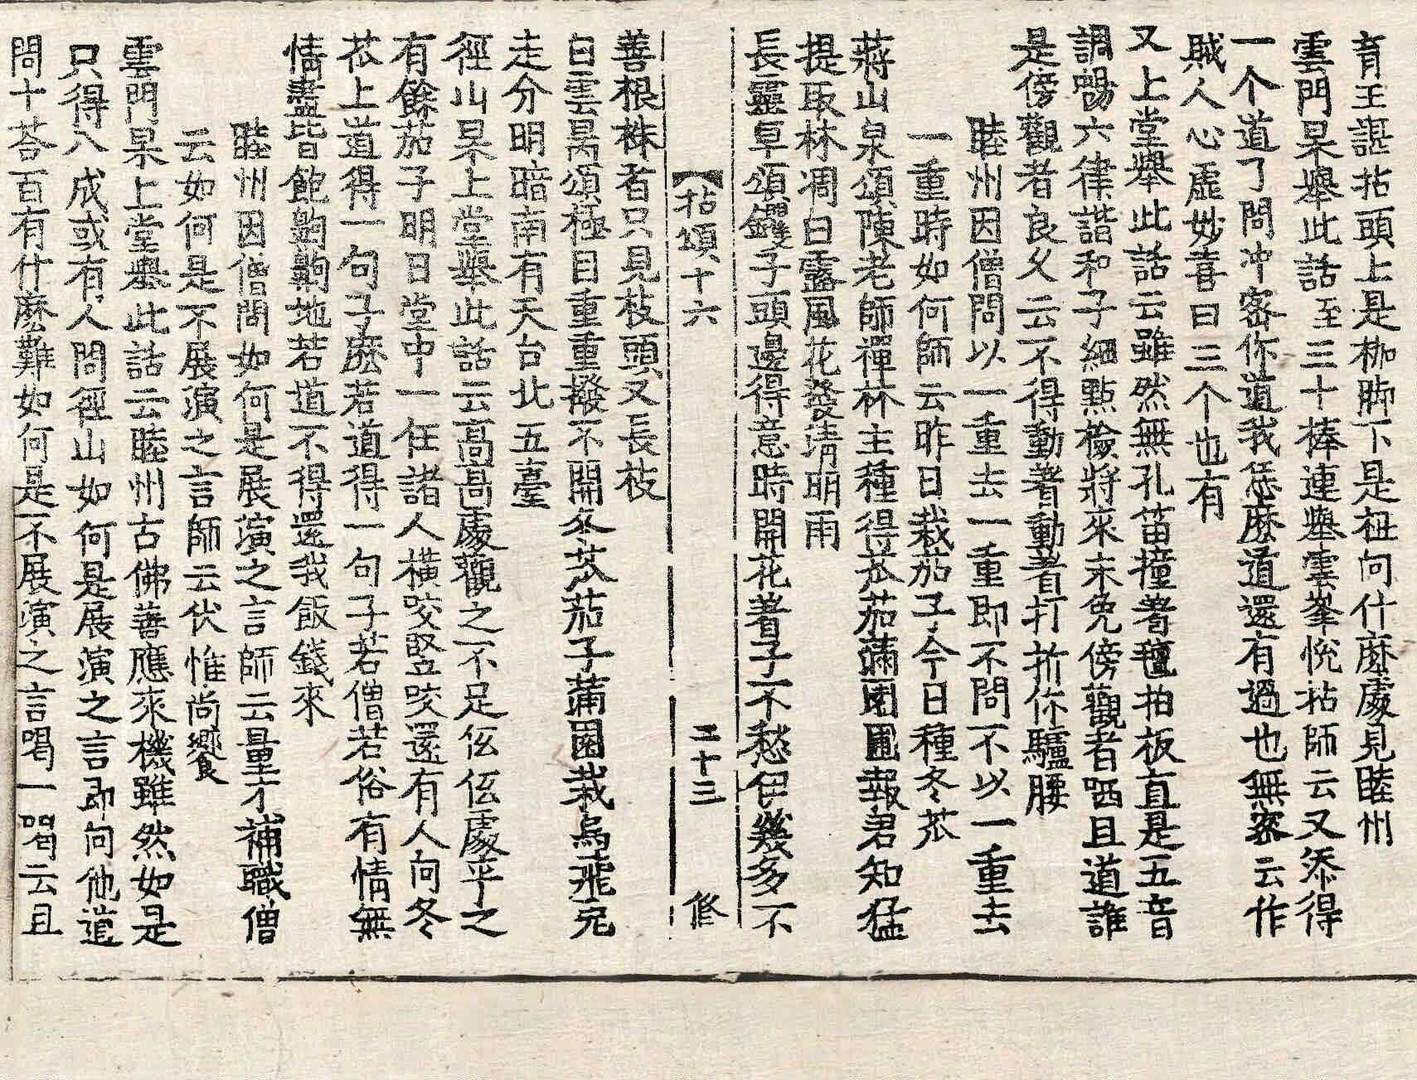 育王諶拈頭上是枷脚下是杻向什麽處見睦州
雲門杲擧此話至三十棒連擧雲峯悅拈師云又添得
一个道了問冲密你道我恁麽道還有過也無密云作
賊人心虛妙喜曰三个也有
又上堂擧此話云雖然無孔笛撞著氊拍板直是五音
調暢六律諧和子細點檢將來未免傍觀者哂且道誰
是傍觀者良久云不得動著動著打折你驢腰
睦州因僧問以一重去一重即不問不以一重去
一重時如何師云昨日栽茄子今日種冬苽
蔣山泉頌陳老師禪林主種得苽茄滿園圃報君知猛
提取林凋白露風花發淸明雨
長靈卓頌钁子頭邊得意時開花著子不愁伊幾多不
拈頌十六 二十三 修
善根株者只見枝頭又長枝
白雲昺頌極目重重撥不開冬苽茄子蒲園栽烏飛兎
走分明暗南有天台北五臺
徑山杲上堂擧此話云高高處觀之不足低低處平之
有餘茄子明日堂中一任諸人橫咬竪咬還有人向冬
苽上道得一句子麽若道得一句子若僧若俗有情無
情盡皆飽齁齁地若道不得還我飯錢來
睦州因僧問如何是展演之言師云量才補職僧
云如何是不展演之言師云伏惟尚饗
雲門杲上堂擧此話云睦州古佛善應來機雖然如是
只得八成或有人問徑山如何是展演之言即向他道
問十荅百有什麽難如何是不展演之言喝一喝云且